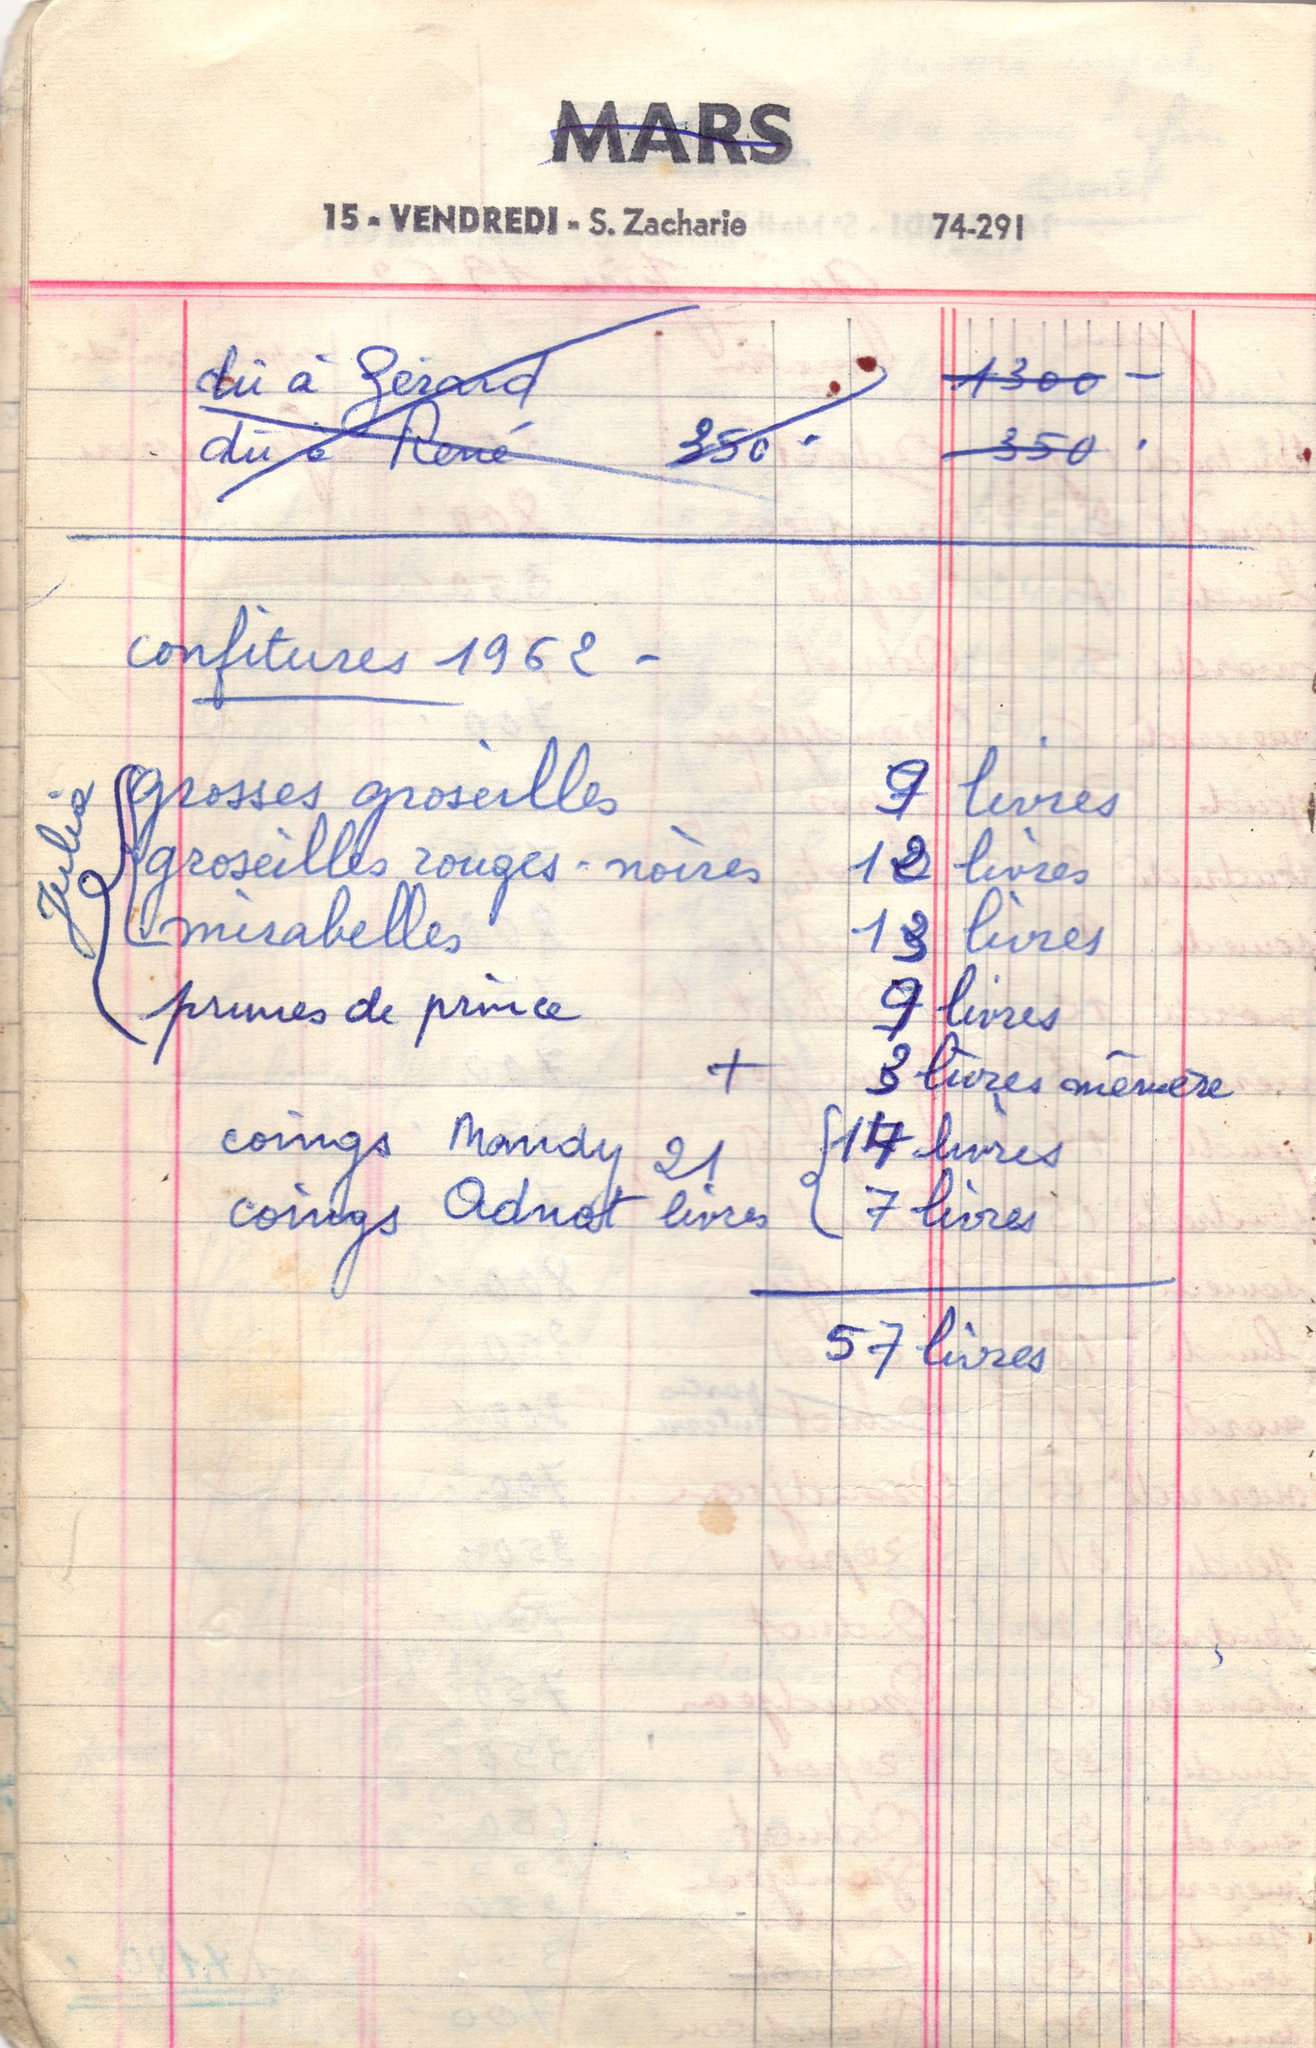 MARS
15 - VENDREDI - S. Zacharie 74-291
dû à Gérard 1300 -
dû à René 350 - 350 -
confitures 1962 -
Julia
grosses groseilles 9 livres
groseilles rouges - noires 12 livres
mirabelles 13 livres
prunes de prince 9 livres
+ 3 livres mémère
coings Mandy 21 14 livres
coings Adnot livres 7 livres
57 livres